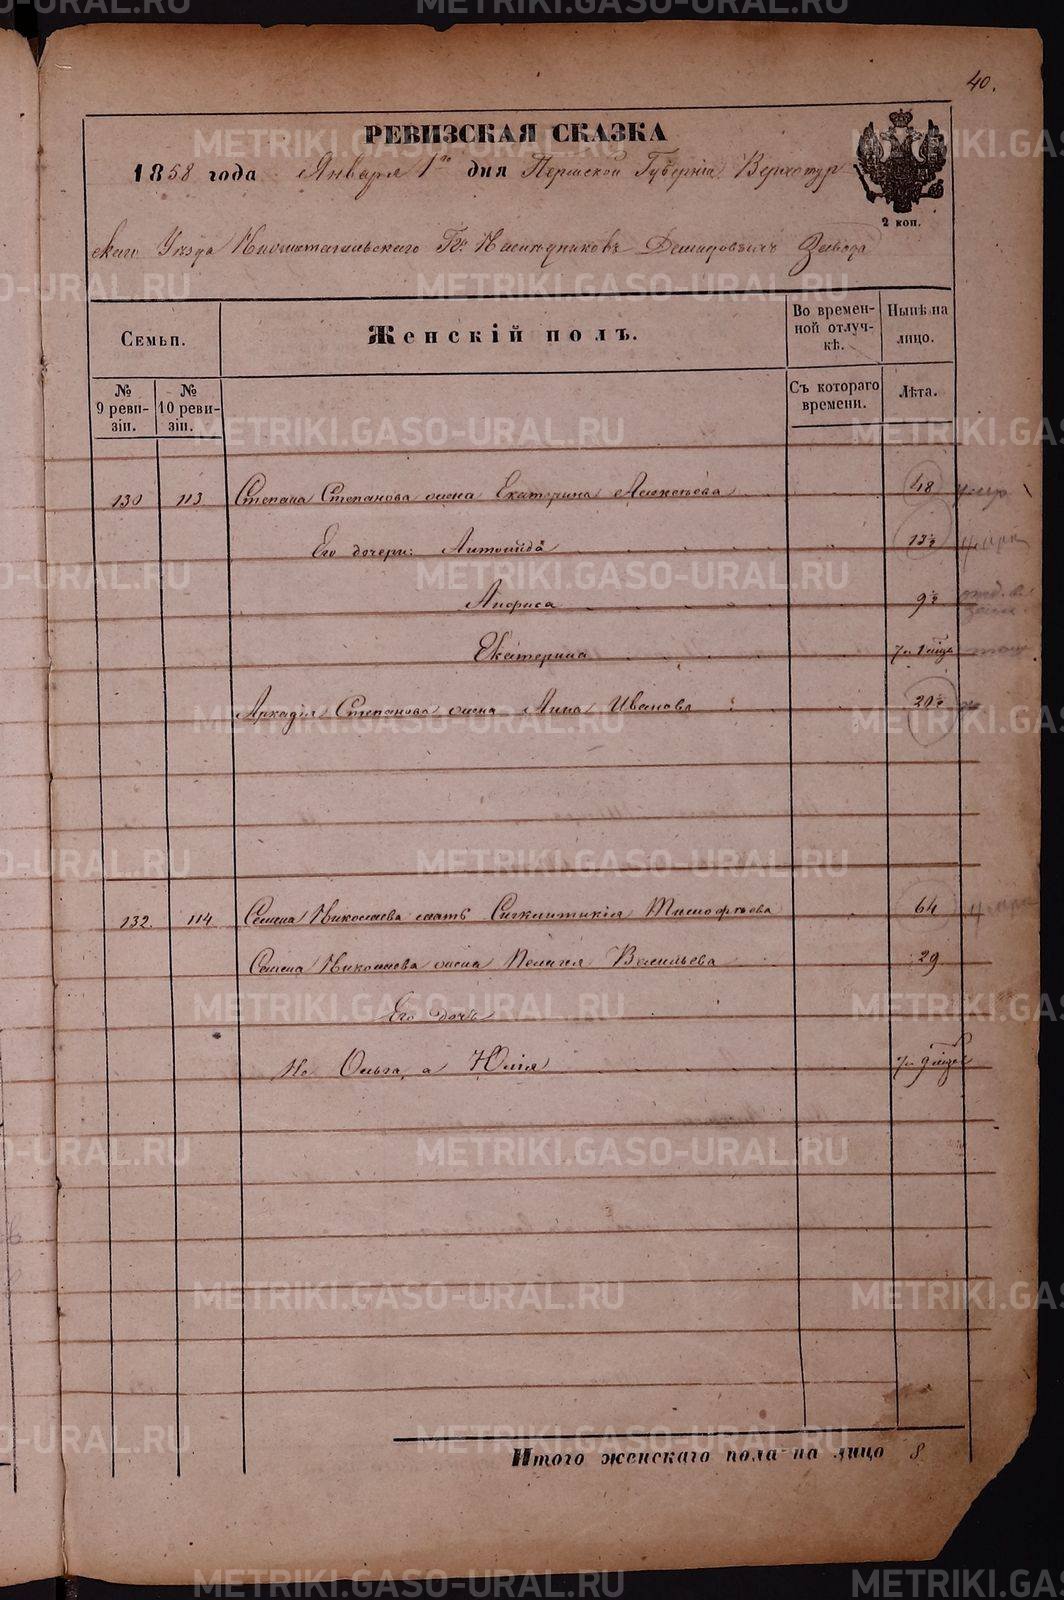 40.
РЕВИЗСКАЯ СКАЗКА
1858 года Января 1го дня Пермской Губерніи Верхотур
2 коп.
скаго Уезда Нижнетагильскаго Гг. Наследниковъ Демидовыхъ Завода
Семьи.
Женскій полъ.
Во времен-
ной отлуч-
кѣ.
Нынѣ на
лицо.
№
9 реви-
зіи.
№
10 реви-
зіи.
Съ котораго
времени.
Лѣта.
130 113 Степана Степанова жена Екатерина Алексеева 48 умер
Его дочери: 13½
Анфиса 9½
Екатерина 7 м
Аркадія Степанова жена Анна Иванова 20½
132. 114 Семена Николаева мать Сигклитикія Тимофеева 64
Семена Николаева жена Пелагея Васильева 29
Его дочь
Не Ольга, а Юлія 9 мцов
Итого женскаго пола на лицо 8
METRIKI.GASO-URAL.RU